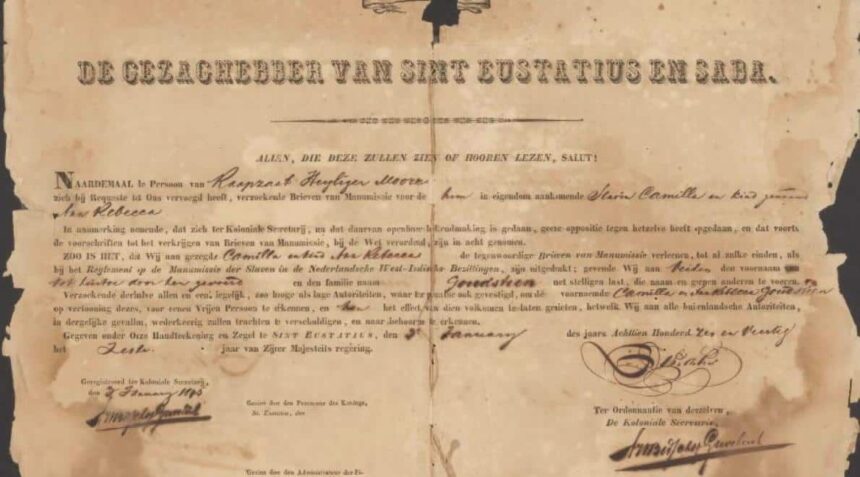 DE GEZAGHEBBER VAN SINT EUSTATIUS EN SABA.
ALLEN, DIE DEZE ZULLEN ZIEN OF HOOREN LEZEN, SALUT!
NAARDEMAAL te Persoon van Raapzaat Heyliger Moore
zich bij Requeste tot Ons vervoegd heeft, verzoekende Brieven van Manumissie voor de hem in eigendom aankomende Slavin Camilla en kind genaamd
Ann Rebecca
In aanmerking nemende, dat zich ter Koloniale Secretarij, na dat daarvan openbare bekendmaking is gedaan, geene oppositie tegen hetzelve heeft opgedaan, en dat voorts
de voorschriften tot het verkrijgen van Brieven van Manumissie, bij de Wet verordend, zijn in acht genomen.
ZOO IS HET, dat Wij aan gezegde Camilla Ann Rebecca de tegenwoordige Brieven van Manumissie verleenen, tot al zulke einden, als
bij het Reglement op de Manumissie der Slaven in de Nederlandsche West-Indische Bezittingen, zijn uitgedrukt; gevende Wij aan Beiden den voornaam
en den familie naam Goudstien met stelligen last, die naam en gepen anderen te voeren.
Verzoekende derhalve allen een iegelijk, zoo hooge als lage Autoriteiten, waar ter plaatse ook gevestigd, om de voornoemde Camilla
op vertooning dezes, voor eenen Vrijen Persoon te erkennen, en hen het effect van dien volkomen te laten genieten, hetwelk Wij aan alle buitenlandsche Autoriteiten,
in dergelijke gevallen, wederkeerig zullen trachten te verschuldigen, en naar behooren te erkennen.
Gegeven onder Onze Handteekening en Zegel te SINT EUSTATIUS, den January des jaars Achttien Honderd Zes en Veertig
het Zesde jaar van Zijner Majesteits regering.
Geregistreerd ter Koloniale Secretarij,
den January
Gezien door den Procureur des Konings,
St. Eustatius, den
Ter Ordonnantie van derzelven,
De Koloniale Secretaris,
Gezien door den Administrateur der Fi-